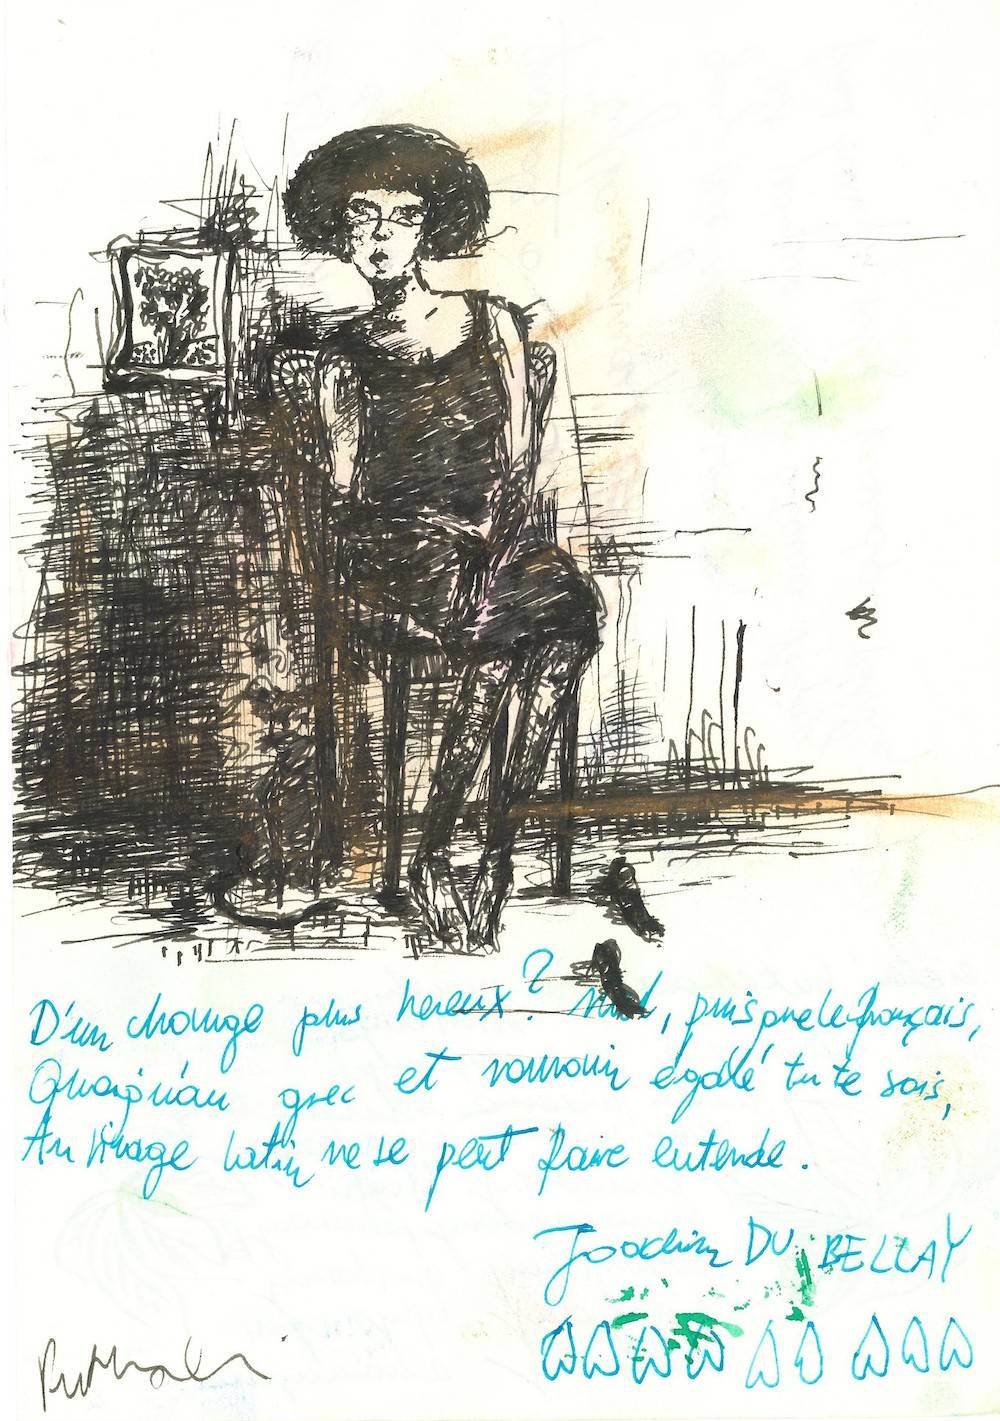 D'un change plus hereux? Nul, puisque le français,
Quoiqu'au grec et romain égalé tu te sois,
Au rivage latin ne se peut faire entende.
Joachim DU BELLAY